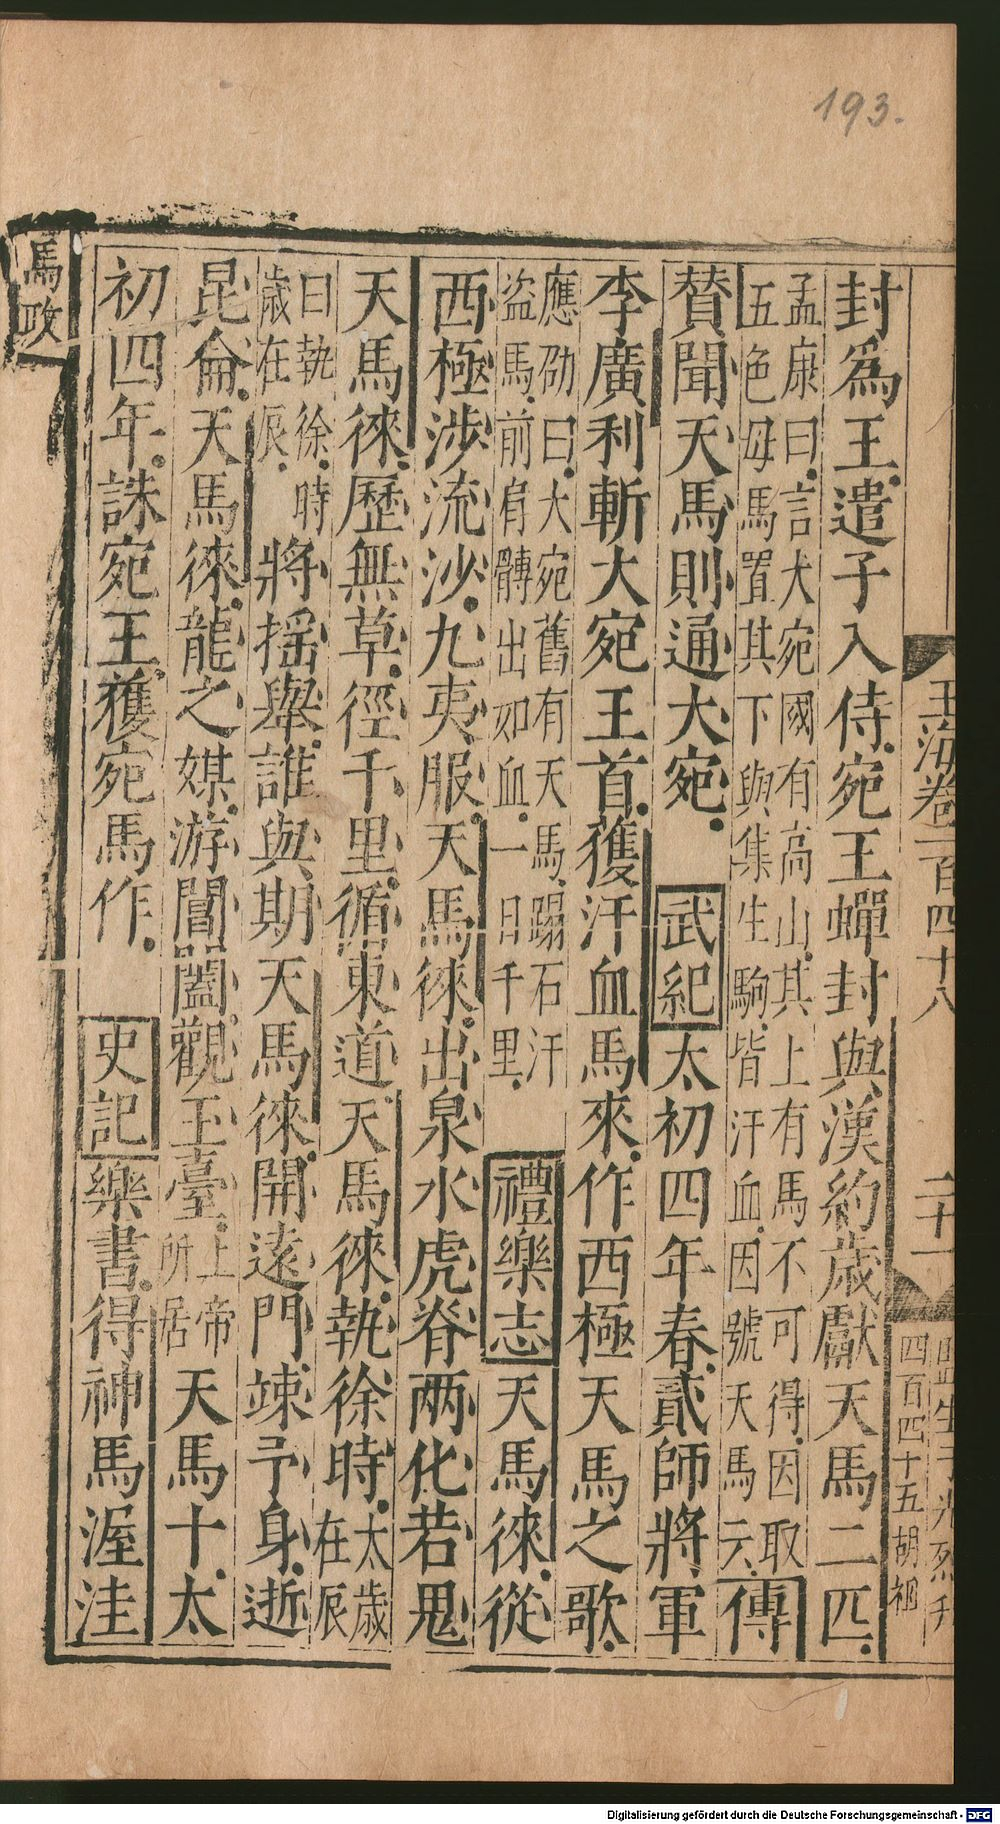 193.
玉海卷一百四十八
二十一
四百四十五胡祖
封爲王遣子入侍宛王蟬封與漢約歲獻天馬二匹
孟康曰言大宛國有高山其上有馬不可得因取
五色母馬置其下與集生駒皆汗血因號天馬云
傳
贊聞天馬則通大宛 武紀太初四年春貳師將軍
李廣利斬大宛王首獲汗血馬來作西極天馬之歌
應劭曰大宛舊有天馬蹋石汗
盗馬前肩髆出如血一日千里
禮樂志天馬徠從
西極涉流沙九夷服天馬徠出泉水虎脊两化若鬼
天馬徠歷無草徑千里循東道天馬徠執徐時
太歲
在辰
曰執徐時
歲在辰
將揺舉誰與期天馬徠開逺門竦予身逝
昆侖天馬徠龍之媒游閶闔觀玉臺
上帝
所居
天馬十太
初四年誅宛王獲宛馬作 史記樂書得神馬渥洼
馬政
Digitalisierung gefördert durch die Deutsche Forschungsgemeinschaft - DFG